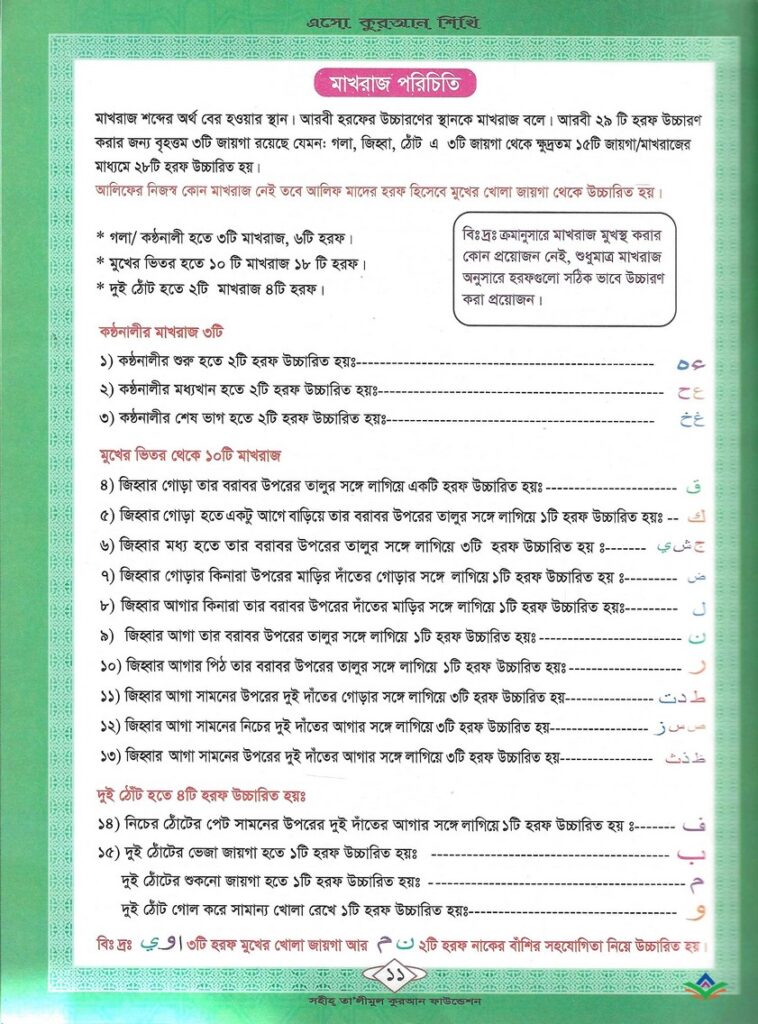 এসো কুরআন শিখি
মাখরাজ পরিচিতি
মাখরাজ শব্দের অর্থ বের হওয়ার স্থান। আরবী হরফের উচ্চারণের স্থানকে মাখরাজ বলে। আরবী ২৯ টি হরফ উচ্চারণ
করার জন্য বৃহত্তম ৩টি জায়গা রয়েছে যেমন: গলা, জিহ্বা, ঠোঁট এ ৩টি জায়গা থেকে ক্ষুদ্রতম ১৫টি জায়গা/মাখরাজের
মাধ্যমে ২৮টি হরফ উচ্চারিত হয়।
আলিফের নিজস্ব কোন মাখরাজ নেই তবে আলিফ মাদের হরফ হিসেবে মুখের খোলা জায়গা থেকে উচ্চারিত হয়।
* গলা/ কণ্ঠনালী হতে ৩টি মাখরাজ, ৬টি হরফ।
* মুখের ভিতর হতে ১০ টি মাখরাজ ১৮ টি হরফ।
* দুই ঠোঁট হতে ২টি মাখরাজ ৪টি হরফ।
বিঃদ্রঃ ক্রমানুসারে মাখরাজ মুখস্থ করার
কোন প্রয়োজন নেই, শুধুমাত্র মাখরাজ
অনুসারে হরফগুলো সঠিক ভাবে উচ্চারণ
করা প্রয়োজন।
কণ্ঠনালীর মাখরাজ ৩টি
১) কণ্ঠনালীর শুরু হতে ২টি হরফ উচ্চারিত হয়ঃ------------------------------------------ ء ه
২) কণ্ঠনালীর মধ্যখান হতে ২টি হরফ উচ্চারিত হয়ঃ---------------------------------------- ع ح
৩) কণ্ঠনালীর শেষ ভাগ হতে ২টি হরফ উচ্চারিত হয়ঃ-------------------------------------- غ خ
মুখের ভিতর থেকে ১০টি মাখরাজ
৪) জিহ্বার গোড়া তার বরাবর উপরের তালুর সঙ্গে লাগিয়ে একটি হরফ উচ্চারিত হয়ঃ ------------------- ق
৫) জিহ্বার গোড়া হতে একটু আগে বাড়িয়ে তার বরাবর উপরের তালুর সঙ্গে লাগিয়ে ১টি হরফ উচ্চারিত হয়ঃ -- ك
৬) জিহ্বার মধ্য হতে তার বরাবর উপরের তালুর সঙ্গে লাগিয়ে ৩টি হরফ উচ্চারিত হয় ঃ------- ج ش ي
৭) জিহ্বার গোড়ার কিনারা উপরের মাড়ির দাঁতের গোড়ার সঙ্গে লাগিয়ে ১টি হরফ উচ্চারিত হয় ঃ--------- ض
৮) জিহ্বার আগার কিনারা তার বরাবর উপরের দাঁতের মাড়ির সঙ্গে লাগিয়ে ১টি হরফ উচ্চারিত হয়ঃ--------- ل
৯) জিহ্বার আগা তার বরাবর উপরের তালুর সঙ্গে লাগিয়ে ১টি হরফ উচ্চারিত হয়ঃ-------------------- ن
১০) জিহ্বার আগার পিঠ তার বরাবর উপরের তালুর সঙ্গে লাগিয়ে ১টি হরফ উচ্চারিত হয়ঃ--------------- ر
১১) জিহ্বার আগা সামনের উপরের দুই দাঁতের গোড়ার সঙ্গে লাগিয়ে ৩টি হরফ উচ্চারিত হয়------------- ط د ت
১২) জিহ্বার আগা সামনের নিচের দুই দাঁতের আগার সঙ্গে লাগিয়ে ৩টি হরফ উচ্চারিত হয়-------------- ص س ز
১৩) জিহ্বার আগা সামনের উপরের দুই দাঁতের আগার সঙ্গে লাগিয়ে ৩টি হরফ উচ্চারিত হয়------------- ظ ذ ث
দুই ঠোঁট হতে ৪টি হরফ উচ্চারিত হয়ঃ
১৪) নিচের ঠোঁটের পেট সামনের উপরের দুই দাঁতের আগার সঙ্গে লাগিয়ে ১টি হরফ উচ্চারিত হয় ঃ------- ف
১৫) দুই ঠোঁটের ভেজা জায়গা হতে ১টি হরফ উচ্চারিত হয়ঃ ---------------------------------- ب
দুই ঠোঁটের শুকনো জায়গা হতে ১টি হরফ উচ্চারিত হয়ঃ ------------------------------------ م
দুই ঠোঁট গোল করে সামান্য খোলা রেখে ১টি হরফ উচ্চারিত হয়ঃ------------------------------ و
বিঃ দ্রঃ ا و ي ৩টি হরফ মুখের খোলা জায়গা আর ن م ২টি হরফ নাকের বাঁশির সহযোগিতা নিয়ে উচ্চারিত হয়।
১১
সহীহ্ তা'লীমুল কুরআন ফাউন্ডেশন